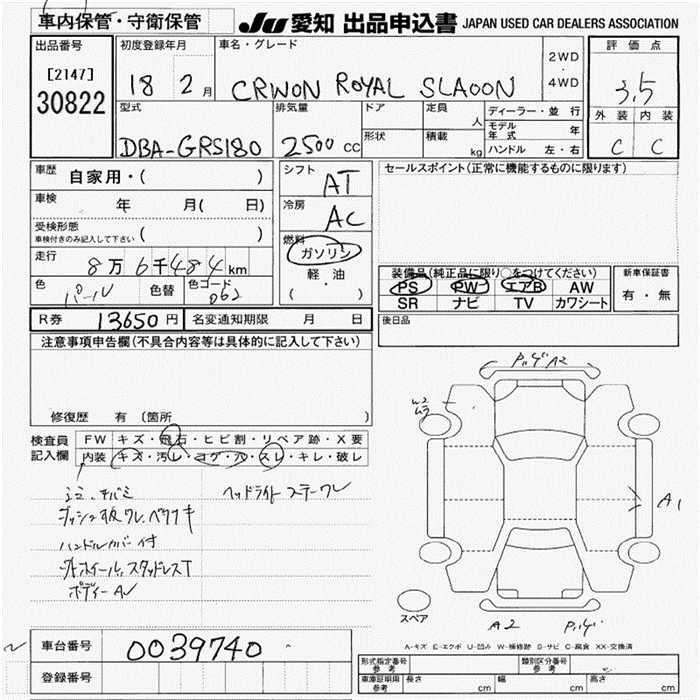 車内保管・守衛保管
JU 愛知 出品申込書 JAPAN USED CAR DEALERS ASSOCIATION
出品番号 初度登録年月 車名・グレード 評価点
[2147] 2WD
30822 18 2月 CRWON ROYAL SLAOON ・ 4WD 3.5
型式 排気量 ドア 定員 人 ディーラー・並行 外装 内装
モデル年式 年
DBA-GRS180 2500cc 形状 積載 kg ハンドル 左・右 C C
車歴 自家用・( ) シフト AT セールスポイント(正常に機能するものに限ります)
車検 年 月( 日) 冷房 AC
受検形態
車検付きのみ記入して下さい ( ) 燃料 ガソリン
走行 8万6千484km 軽・油 装備品(純正品に限り○をつけてください) 新車保証書
色 パール 色替 色コード 062 ・ ( ) PS PW エアB AW 有・無
SR ナビ TV カワシート
R券 13650円 名変通知期限 月 日 後日品
注意事項申告欄(不具合内容等は具体的に記入して下さい)
修復歴 有 (箇所 )
検査員 FW キズ・飛石・ヒビ割・リペア跡・X要
記入欄 内装 キズ・汚レ・コゲ・穴・スレ・キレ・破レ
ヘッドライト ステー ワレ
ハンドルカバー付
ボディー
A2
A1
スペア A2
A-キズ E-エクボ U-凹み W-補修跡 S-サビ C-腐食 XX-交換済
車台番号 0039740
登録番号
形式指定番号 参考 類別区分番号 参考
車庫証明用 参考 長さ cm 幅 cm 高さ cm